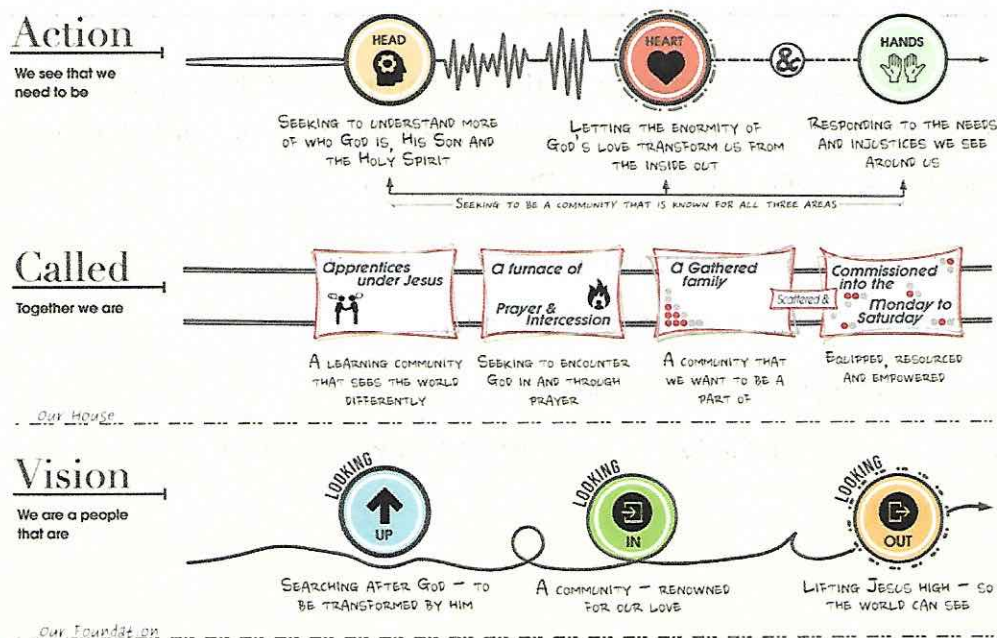 Action
We see that we
need to be
HEAD
HEART
&
HANDS
SEEKING TO UNDERSTAND MORE
OF WHO GOD IS, HIS SON AND
THE HOLY SPIRIT
LETTING THE ENORMITY OF
GOD'S LOVE TRANSFORM US FROM
THE INSIDE OUT
RESPONDING TO THE NEEDS
AND INJUSTICES WE SEE
AROUND US
SEEKING TO BE A COMMUNITY THAT IS KNOWN FOR ALL THREE AREAS
Called
Together we are
apprentices
under Jesus
a furnace of
Prayer &
Intercession
a Gathered
family
Scattered &
Commissioned
into the
Monday to
Saturday
A LEARNING COMMUNITY
THAT SEES THE WORLD
DIFFERENTLY
SEEKING TO ENCOUNTER
GOD IN AND THROUGH
PRAYER
A COMMUNITY THAT
WE WANT TO BE A
PART OF
EQUIPPED, RESOURCED
AND EMPOWERED
Our House
Vision
We are a people
that are
LOOKING
UP
LOOKING
IN
LOOKING
OUT
SEARCHING AFTER GOD – TO
BE TRANSFORMED BY HIM
A COMMUNITY – RENOWNED
FOR OUR LOVE
LIFTING JESUS HIGH – SO
THE WORLD CAN SEE
Our Foundation